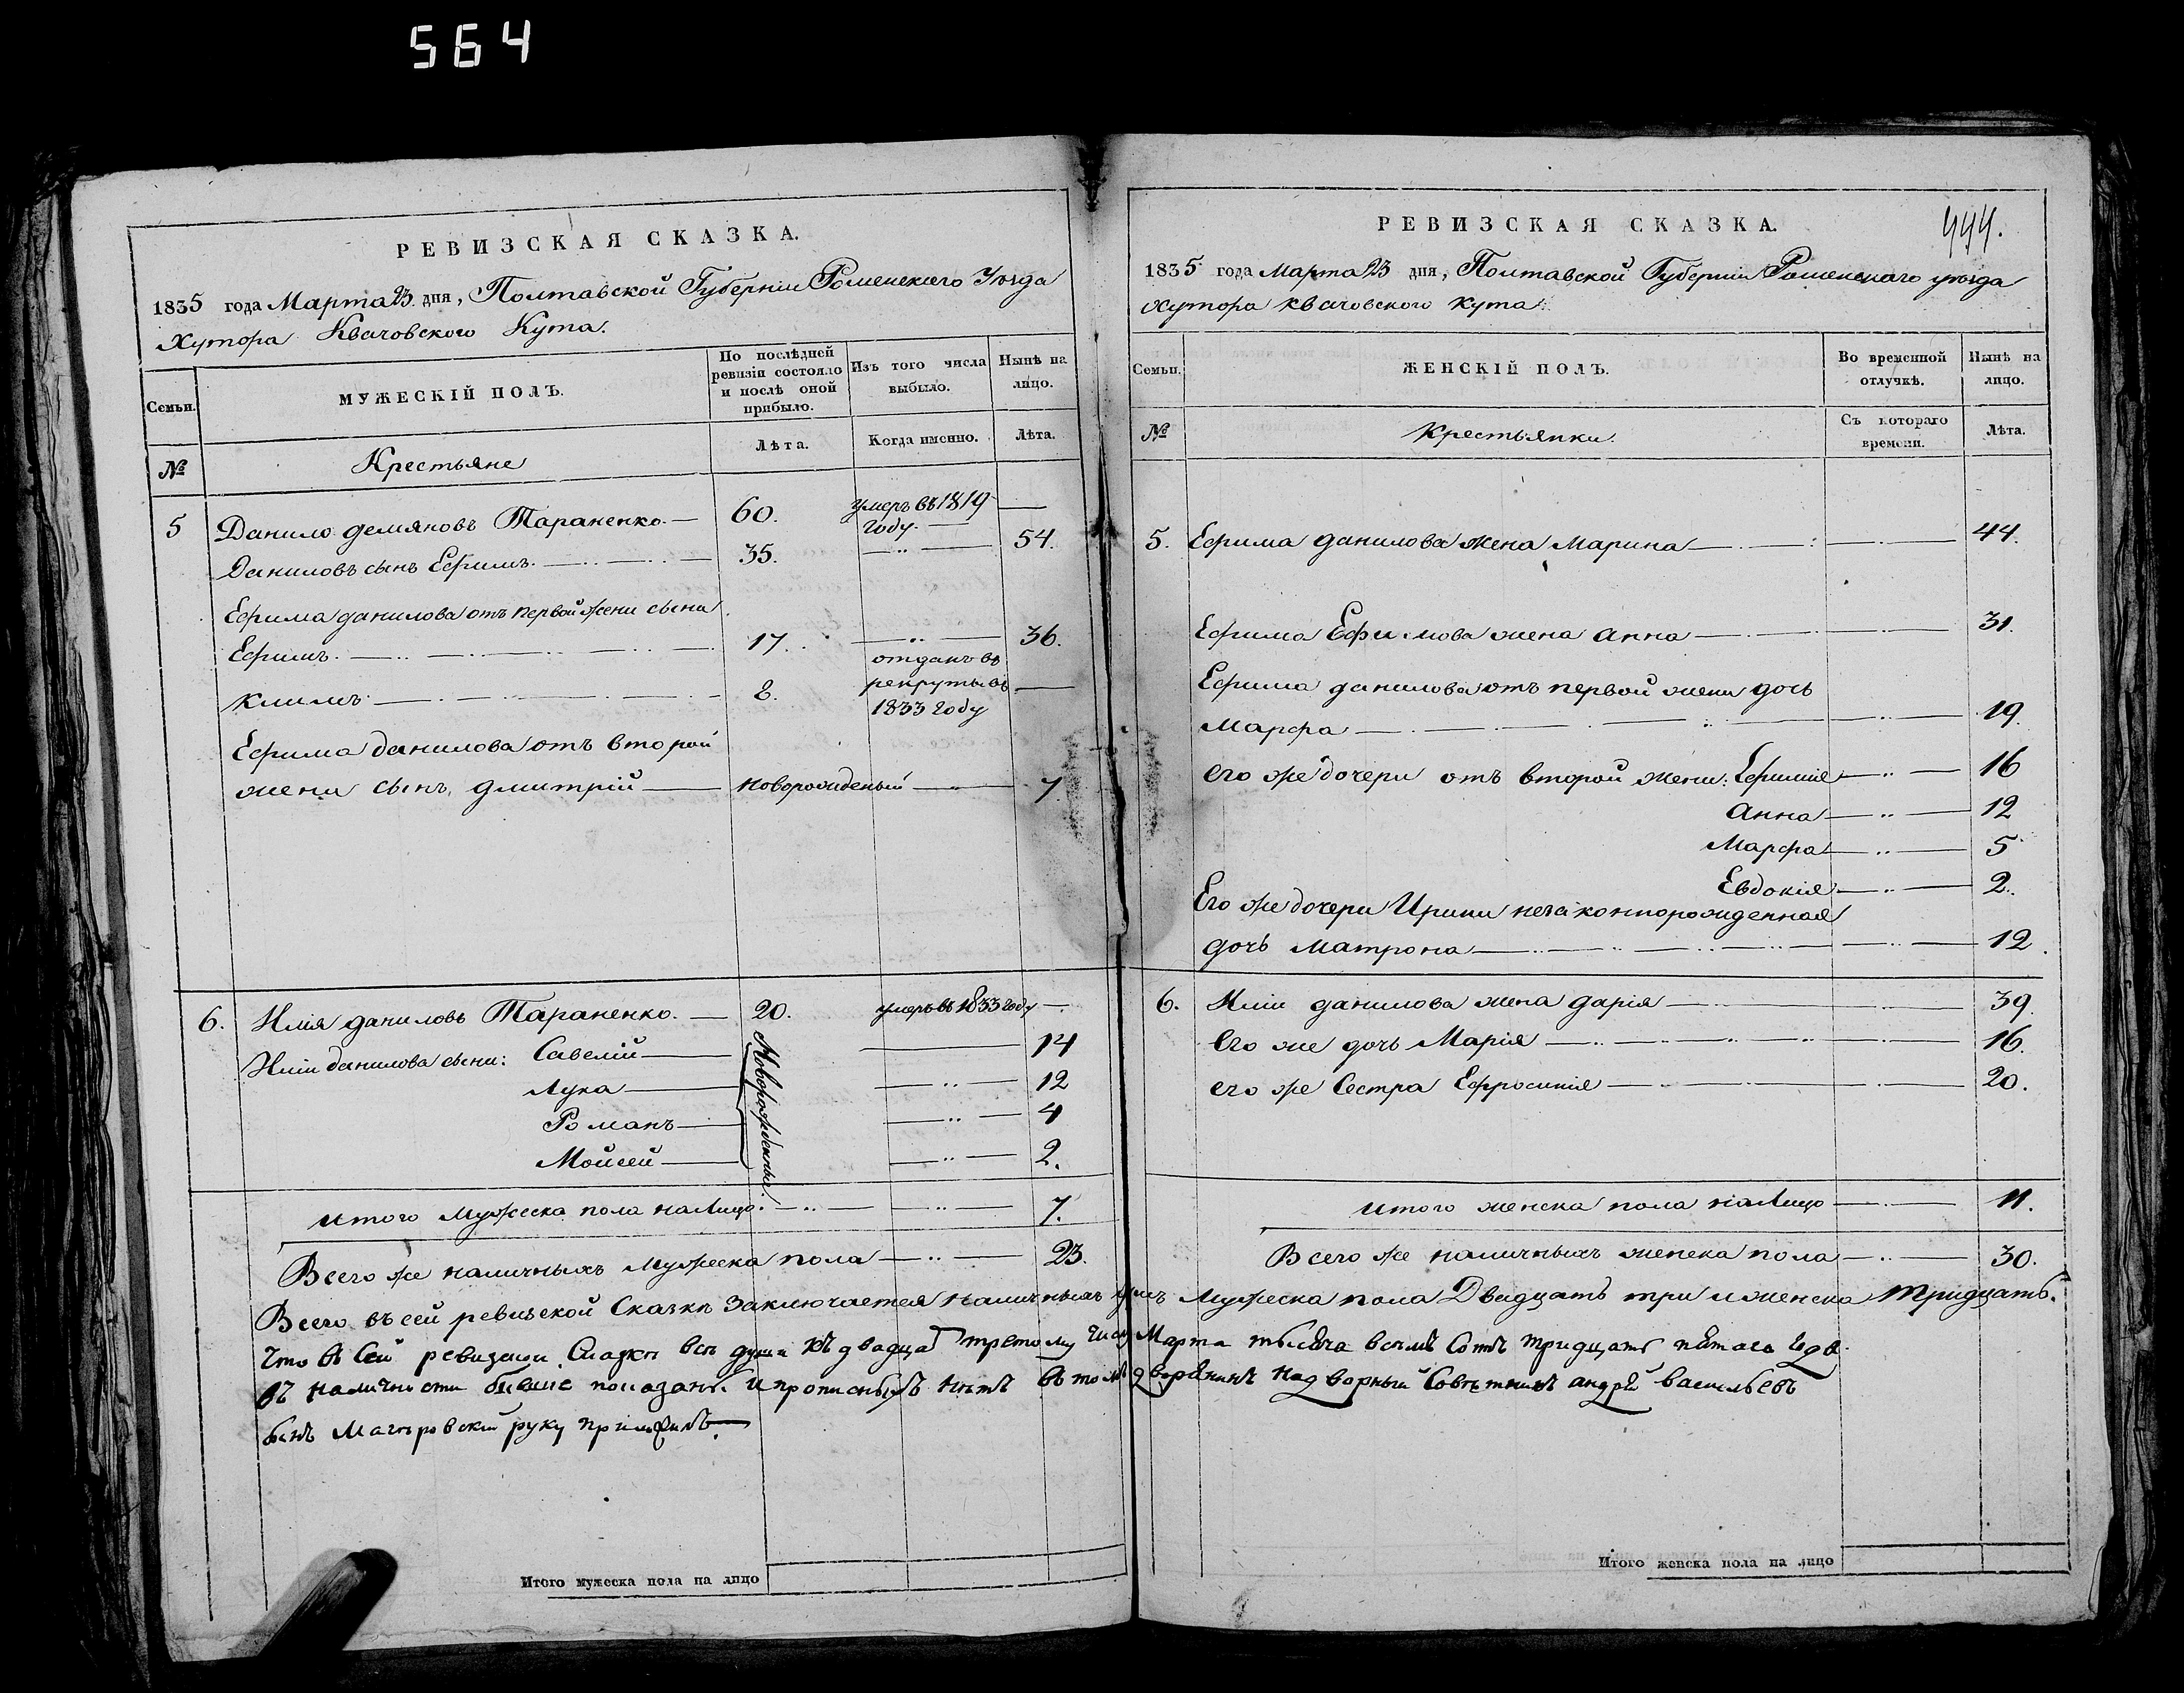 564
РЕВИЗСКАЯ СКАЗКА.
1835 года Марта 23 дня, Полтавской Губерніи Роменского Уѣзда
Хутора Квачовского Кута.
Семьи.
МУЖЕСКІЙ ПОЛЪ.
По послѣдней ревизіи состояло и послѣ оной прибыло.
Изъ того числа выбыло.
Нынѣ на лицо.
№
Крестьяне
Лѣта.
Когда именно.
Лѣта.
5 Данило демяновъ Тараненко. — 60. умеръ въ 1819 году. —
Даниловъ сынъ Ефимъ. — 35. — 54.
Ефима данилова отъ первой жени сыни
Ефимъ. — 17. — 36.
Климъ — 8. отданъ въ рекруты въ 1833 году —
Ефима данилова отъ второй
жени сынъ, дмитрій — новорожденый — 7.
6. Илія даниловъ Тараненко. — 20. умеръ въ 1833 году —
Иліи данилова сыни: Савелій — Новорожденые. — 14
Лука — 12
Романъ — 4
Мойсей — 2.
итого Мужеска пола на Лицо. — 7.
Всего же наличныхъ Мужеска пола — 23.
Итого мужеска пола на лицо
РЕВИЗСКАЯ СКАЗКА.
444.
1835 года Марта 23 дня, Полтавской Губерніи Роменскаго уѣзда
хутора Квачовского Кута
Семьи.
ЖЕНСКІЙ ПОЛЪ.
Во временной отлучкѣ.
Нынѣ на лицо.
№
Крестьянки.
Съ котораго времени.
Лѣта.
5. Ефима данилова жена Марина — 44.
Ефима Ефимова жена анна — 31.
Ефима данилова отъ первой жени дочь
Марфа — 19.
его же дочери отъ второй жени: Ефимія — 16
Анна — 12
Марфа — 5
Евдокія — 2.
Его же дочери Ирини незаконнорожденная
дочь Матрона — 12.
6. Иліи данилова жена дарія — 39.
Его же дочь Марія — 16.
его же Сестра Ефросинія — 20.
итого женска пола на Лицо — 11.
Всего же наличныхъ женска пола — 30.
Всего въ сей ревизской Сказкѣ Заключается наличныхъ душъ Мужеска пола Двадцать три и женска тридцать.
Что въ Сей ревизской Сказкѣ всѣ души къ двадцат третому числу Марта тысяча восемъ Сотъ тридцать пятаго Года
въ наличности бывшие показаны и прописныхъ нѣтъ въ томъ дворянинъ надворный Совѣтникъ андрей васильевъ
сынъ руку приложилъ
Итого женска пола на лицо